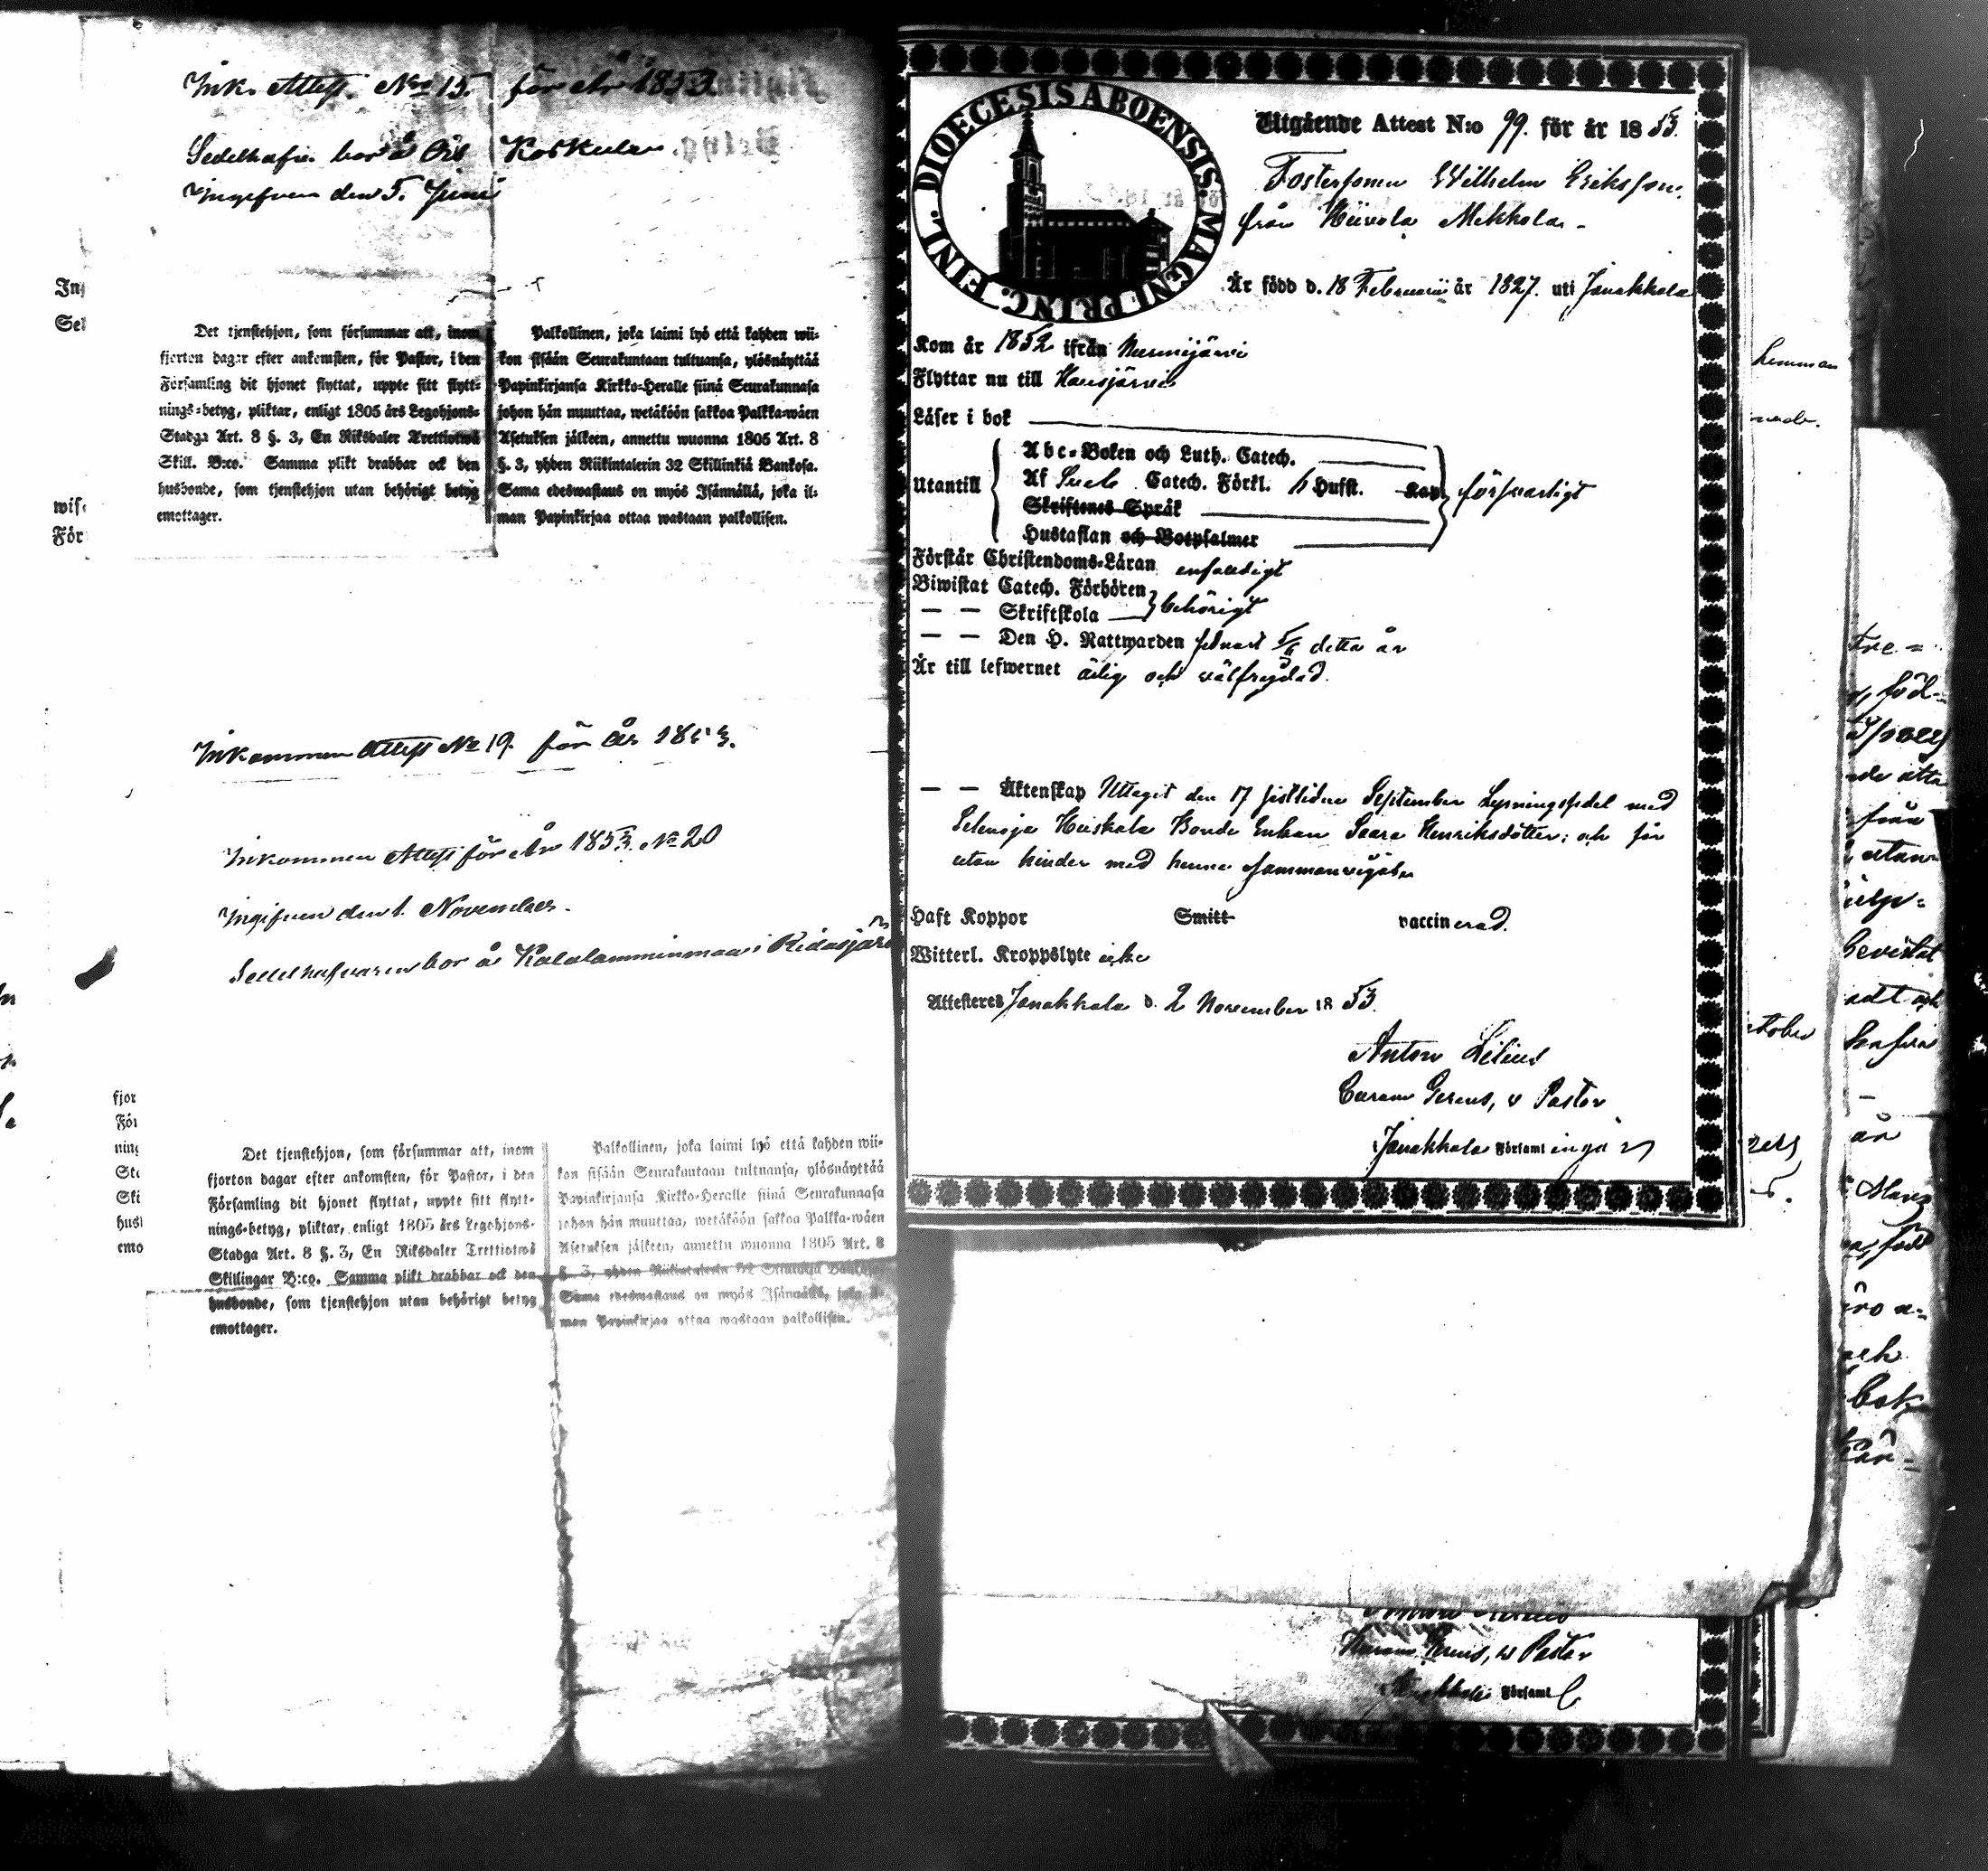 Ink. Attest. No 15. för År 1853.
Sedelhafv. bor å Ois Koskela
Ingifven den 5. Juni
Det tjenstehjon, som försummar att, inom
fjorton dagar efter ankomsten, för Pastor, i den
Församling dit hjonet flyttat, uppte sitt flytt-
nings-betyg, pliktar, enligt 1805 års Legohjons-
Stadga Art. 8 §. 3, En Riksdaler Trettiotwå
Skill. B:co. Samma plikt drabbar ock den
husbonde, som tjenstehjon utan behörigt betyg
emottager.
Palkollinen, joka laimi lyö että kahden wii-
kon sisään Seurakuntaan tultuansa, ylösnäyttää
Papinkirjansa Kirkko-Heralle siinä Seurakunnasa
johon hän muuttaa, wetäköön sakkoa Palkka-wäen
Asetuksen jälkeen, annettu wuonna 1805 Art. 8
§. 3, yhden Riikintalerin 32 Skillinkiä Bankosa.
Sama edeswastaus on myös Isännällä, joka il-
man Papinkirjaa ottaa wastaan palkollisen.
Inkommen Attest No 19. för År 1853.
Inkommen Attest för År 1853. No 20
Ingifven den 1. November.
Sedelhafvaren bor å Kalalamminmaa i Ridasjärvi
Det tjenstehjon, som försummar att, inom
fjorton dagar efter ankomsten, för Pastor, i den
Församling dit hjonet flyttat, uppte sitt flytt-
nings-betyg, pliktar, enligt 1805 års Legohjons-
Stadga Art. 8 §. 3, En Riksdaler Trettiotwå
Skillingar B:co. Samma plikt drabbar ock den
husbonde, som tjenstehjon utan behörigt betyg
emottager.
Palkollinen, joka laimi lyö että kahden wii-
kon sisään Seurakuntaan tultuansa, ylösnäyttää
Papinkirjansa Kirkko-Heralle siinä Seurakunnasa
johon hän muuttaa, wetäköön sakkoa Palkka-wäen
Asetuksen jälkeen, annettu wuonna 1805 Art. 8
§. 3, yhden Riikintalerin 32 Skillinkiä Bankosa.
Sama edeswastaus on myös Isännällä, joka il-
man Papinkirjaa ottaa wastaan palkollisen.
DIOECESIS ABOENSIS. MAGNI PRINC. FINL.
Utgående Attest N:o 99. för år 1853.
Fostersonen Wilhelm Eriksson,
från Hiivola Mikkola.
Är född d. 18 Februarii år 1827. uti Janakkala
Kom år 1852 ifrån Nurmijärvi
Flyttar nu till Hausjärvi
Läser i bok
Utantill
Abc-Boken och Luth. Catech.
Af Sueb. Catech. Förkl. h Hufst. Kap. försvarligt
Skriftenes Språk
Hustaflan och Botpsalmer
Förstår Christendoms-Läran enfaldigt
Biwistat Catech. Förhören
— — Skriftskola behörigt
— — Den H. Nattwarden sednast 5/6 detta år
Är till lefwernet ärlig och välfrejdad.
— — Äktenskap Uttagit den 17 sistlidne September Lysningssedel med
Bonde Enkan Saara Henriksdotter; och får
utan hinder med henne sammanvigas
Haft Koppor Smitt vaccinerad.
Witterl. Kroppslyte icke
Attesteras Janakkala d. 2 November 1853.
Anton Lilius
Curam Gerens, v Pastor
Janakkala Församlinga
Curam Gerens, v Pastor
Janakkala Församl